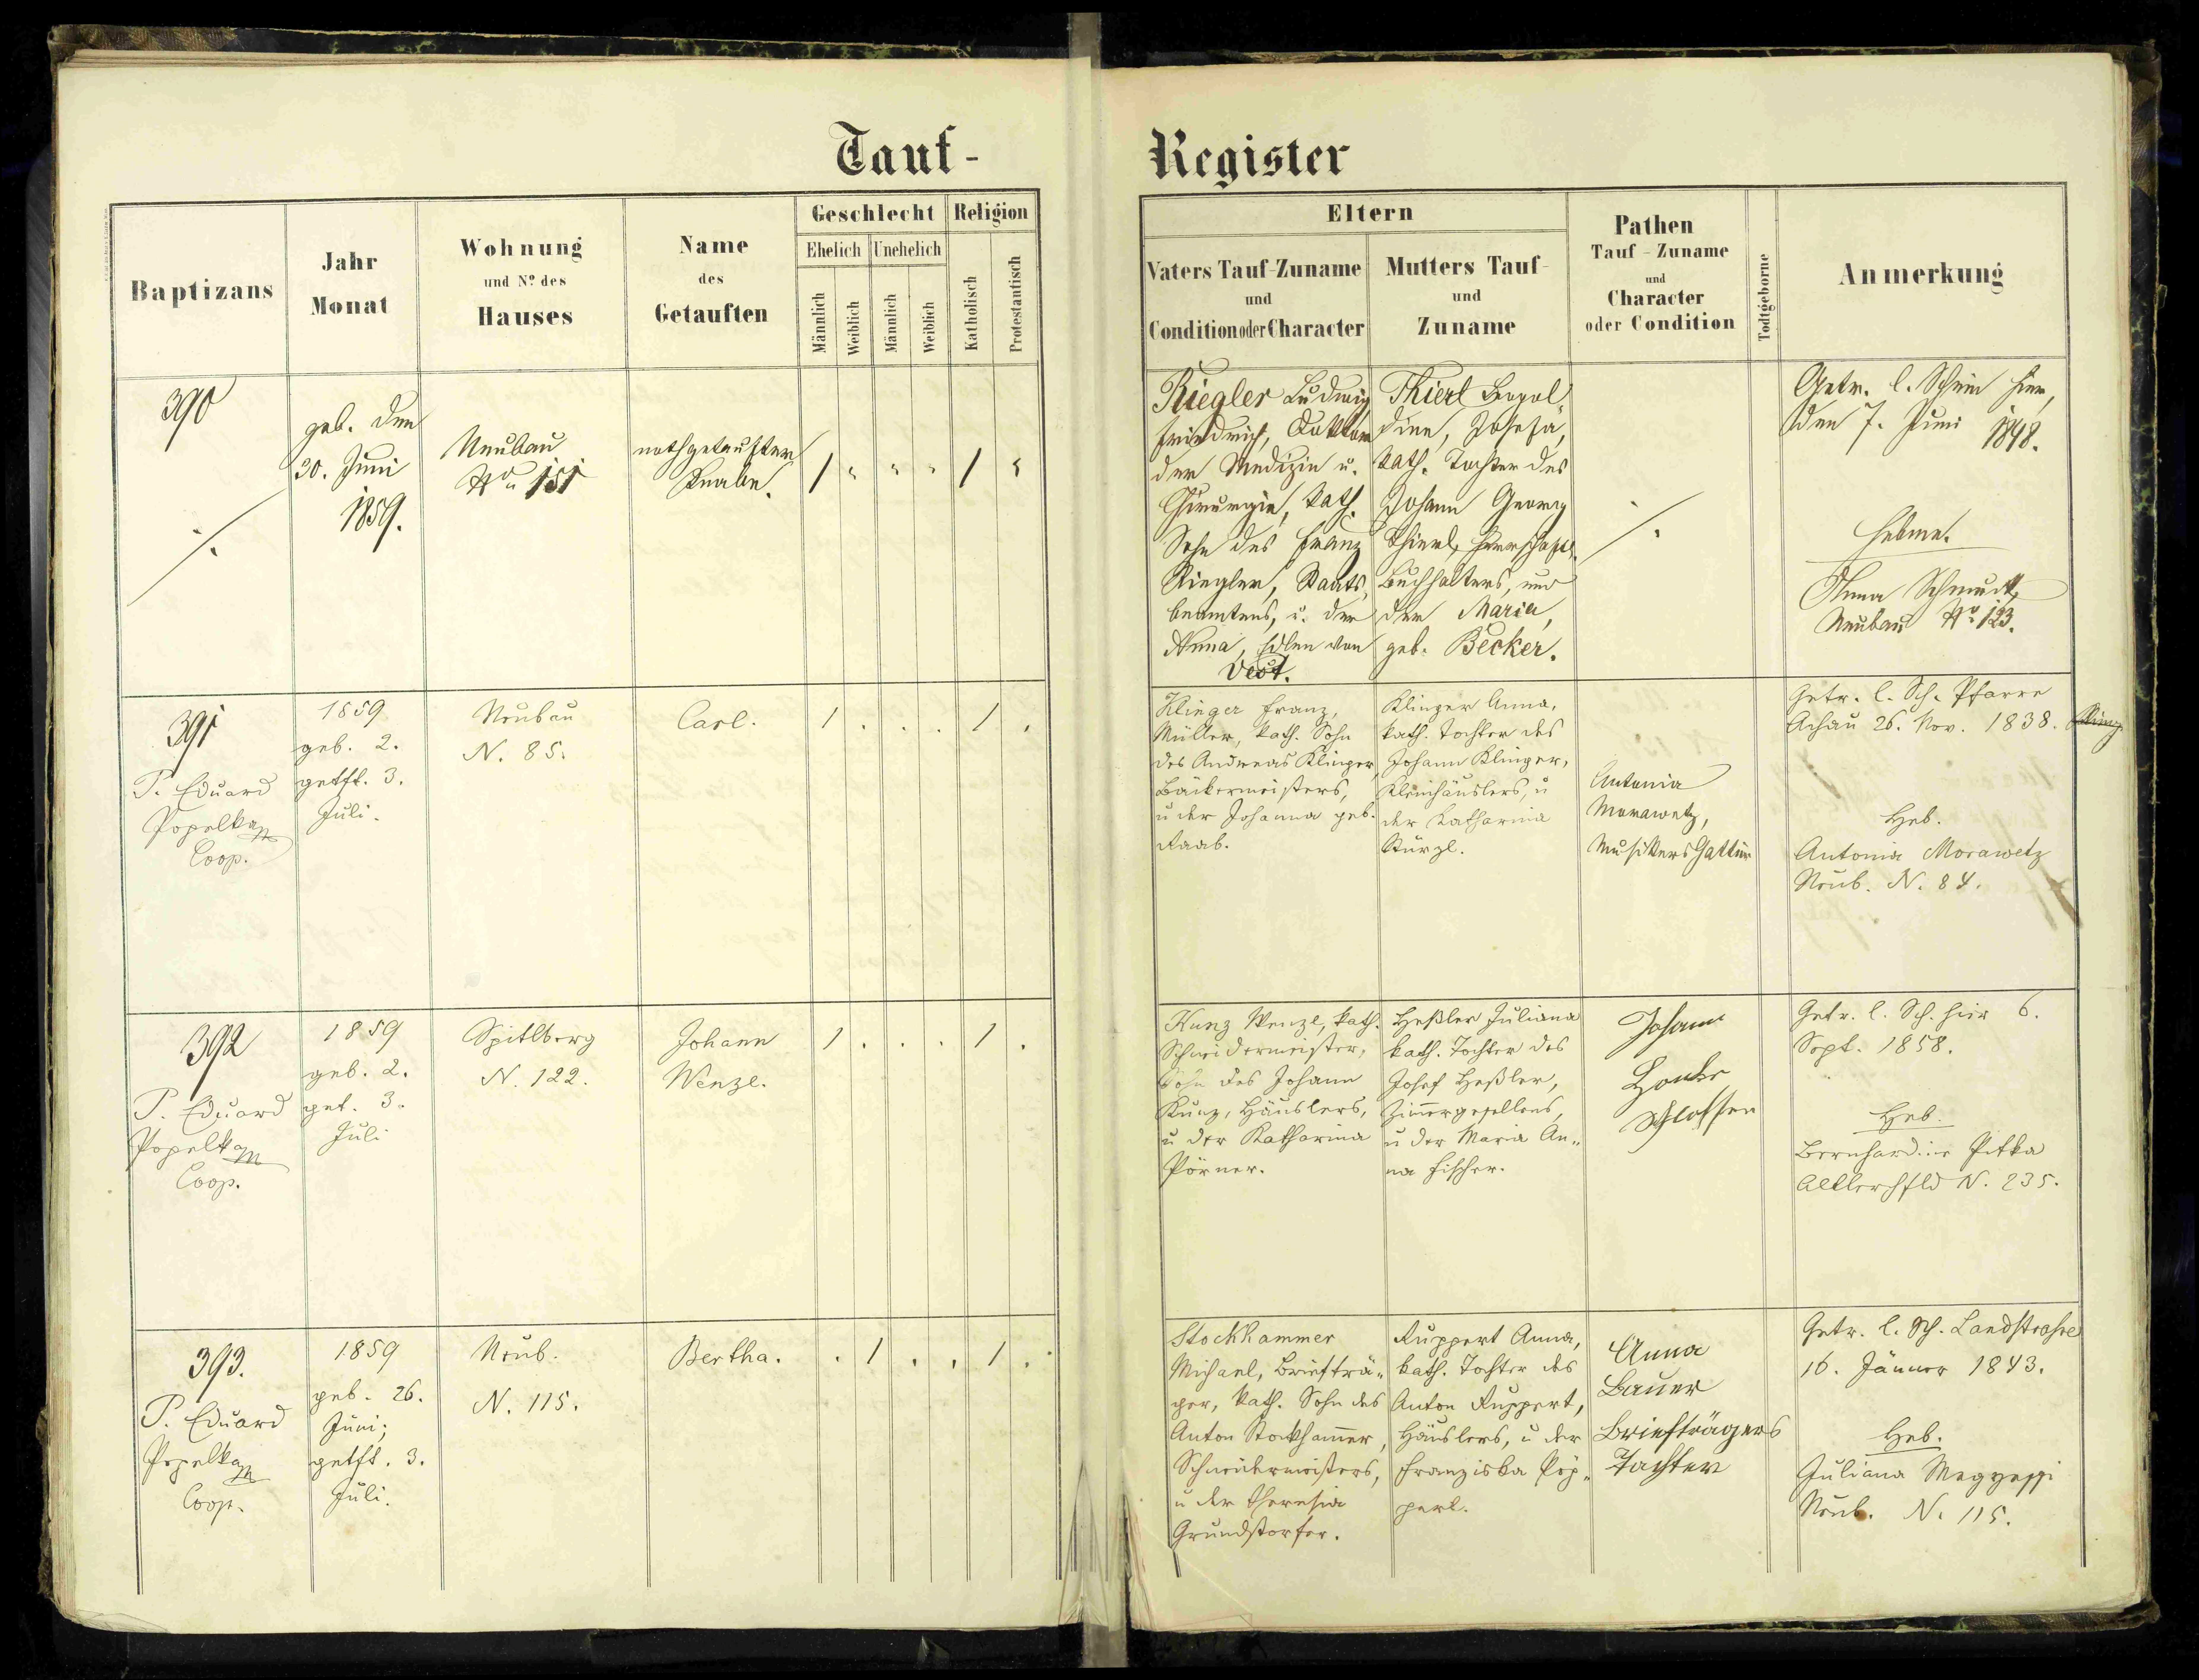 Tauf-
Register
Baptizans
Jahr
Monat
Wohnung
und No des
Hauses
Name
des
Getauften
Geschlecht
Ehelich
Unehelich
Männlich
Weiblich
Männlich
Weiblich
Religion
Katholisch
Protestantisch
Eltern
Vaters Tauf-Zuname
und
Condition oder Character
Mutters Tauf-
und
Zuname
Pathen
Tauf-Zuname
und
Character
oder Condition
Todtgeborne
Anmerkung
390
geb. den
30. Juni
1859.
Neubau
No 151
nothgetaufter
Knabe.
Riegler Ludwig
Friedrich, Doktor
der Medizin u.
Chirurgie, kath.
Sohn des Franz
Riegler, Staats-
beamtens, u. der
Anna, Edlen von
Vest.
Thierl Leopol
dine, Josefa,
kath. Tochter des
Johann Georg
Thierl, herrschaftl.
Buchhalters, und
der Maria,
geb. Becker.
Getr. l. Schein hier,
den 7. Juni 1848.
Hebme.
Anna Schmidt,
Neubau No 123.
391
P. Eduard
Popelka
Coop.
1859
geb. 2.
getft. 3.
Juli.
Neubau
N. 85.
Carl.
1 . . . 1 .
Klinger Franz,
Müller, kath. Sohn
des Andreas Klinger,
Bäckermeisters,
u der Johanna geb.
Raab.
Klinger Anna,
kath. Tochter des
Johann Klinger,
Kleinhäuslers, u
der Katharina
Stürzl.
Antonia
Morawetz,
Musikers Gattin
Getr. l. Sch. Pfarre
Achau 26. Nov. 1838.
Heb.
Antonia Morawetz
Neub. N. 84.
392
P. Eduard
Popelka
Coop.
1859
geb. 2.
get. 3.
Juli
Spitlberg
N. 122.
Johann
Wenzl.
1 . . . 1 .
Kunz Wenzl, kath.
Schneidermeister,
Sohn des Johann
Kunz, Häuslers,
u der Katharina
Pörner.
Heßler Juliana
kath. Tochter des
Josef Heßler,
Zimergesellens,
u der Maria An„
na Fischer.
Johann
Schlosser
Getr. l. Sch. hier 6.
Sept. 1858.
Heb.
Bernhardine Pitka
Altlerchfld N. 235.
393.
P. Eduard
Popelka
Coop.
1859
geb. 26.
Juni;
getft. 3.
Juli.
Neub.
N. 115.
Bertha.
. 1 . . 1 .
Stockhammer
Michael, Briefträ„
ger, kath. Sohn des
Anton Stockhamer,
Schneidermeisters,
u der Theresia
Grundstorfer.
Ruppert Anna,
kath. Tochter des
Anton Ruppert,
Häuslers, u der
Franziska Pöp„
perl.
Anna
Bauer
Briefträgers
Tochter
Getr. l. Sch. Landstrasse
16. Jänner 1843.
Heb.
Juliana
Neub. N. 115.